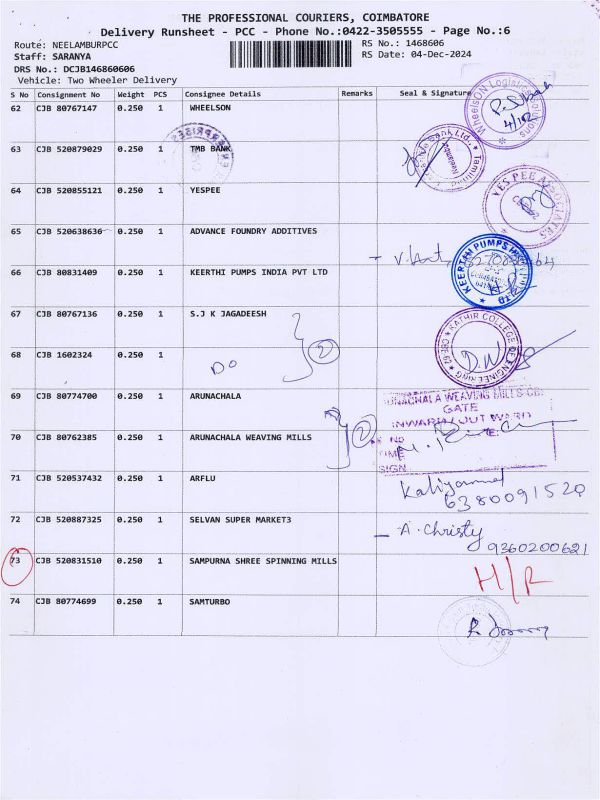 THE PROFESSIONAL COURIERS, COIMBATORE
Delivery Runsheet - PCC - Phone No.:0422-3505555 - Page No.:6
Route: NEELAMBURPCC
RS No.: 1468606
Staff: SARANYA
RS Date: 04-Dec-2024
DRS No.: DCJB146860606
Vehicle: Two Wheeler Delivery
S No Consignment No Weight PCS Consignee Details Remarks Seal & Signature
62 CJB 80767147 0.250 1 WHEELSON
WheelsON Logistics Solutions
4/12
63 CJB 520879029 0.250 1 TMB BANK
64 CJB 520855121 0.250 1 YESPEE
YES PEE ASSOCIATES
65 CJB 520638636 0.250 1 ADVANCE FOUNDRY ADDITIVES
66 CJB 80831409 0.250 1 KEERTHI PUMPS INDIA PVT LTD
KEERTHI PUMPS
67 CJB 80767136 0.250 1 S.J K JAGADEESH
2
KATHIR COLLEGE OF ENGINEERING
68 CJB 1602324 0.250 1
Do
69 CJB 80774700 0.250 1 ARUNACHALA
ARUNACHALA WEAVING MILLS-CBE
GATE
INWARD / OUT WARD
70 CJB 80762385 0.250 1 ARUNACHALA WEAVING MILLS
2
NO
TIME
SIGN
71 CJB 520537432 0.250 1 ARFLU
Kaliyammal
6380091520
72 CJB 520887325 0.250 1 SELVAN SUPER MARKET3
A. Christy
9360200621
73 CJB 520831510 0.250 1 SAMPURNA SHREE SPINNING MILLS
H/R
74 CJB 80774699 0.250 1 SAMTURBO